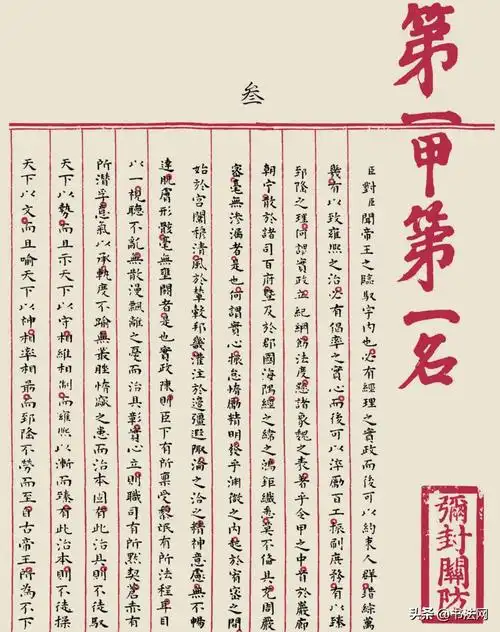 第一甲第一名
彌封關防
叁
臣對臣聞帝王之臨馭宇內也必有經理之實政而後可以約束人群錯綜萬
幾有以致雍熙之治必有倡率之實心而後可以淬勵百工振刷庶務有以臻
郅隆之理何謂實政立紀綱飭法度懸諸象魏之表著乎令甲之中首於嚴廊
朝寧散於諸司百府暨及於郡國海隅經之緯之鴻鉅纖悉莫不備具充周嚴
密毫無滲漏者是也何謂實心振怠惰勵精明發乎淵微之內起於宥密之間
始於宮闈穆清風於輦轂邦畿灌注於邊疆遐陬瀹之洽之精神意慮無不暢
達肌膚形骸毫無壅閼者是也實政陳則臣下有所稟受黎氓有所法程耳目
以一視聽不亂無散漫飄離之憂而治具彰實心立則職司有所默契蒼赤有
所潛孚意氣以承軌度不踰無叢脞惰窳之患而治本固有此治具則不徒馭
天下以勢而且示天下以守相維相制而雍熙以漸而臻有此治本則不徒操
天下以文而且喻天下以神相率相勖而郅隆不勞而至自古帝王所為不下
头条 @书法网